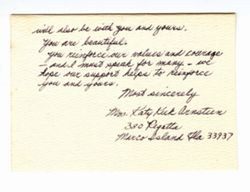 will also be with you and yours.
You are beautiful.
You reinforce our values and courage
— and I must speak for many — we
hope our support helps to reinforce
you and yours.
Most sincerely
Mrs. Katy Kirk Arnstein
380 Regatta
Marco Island Fla 33937